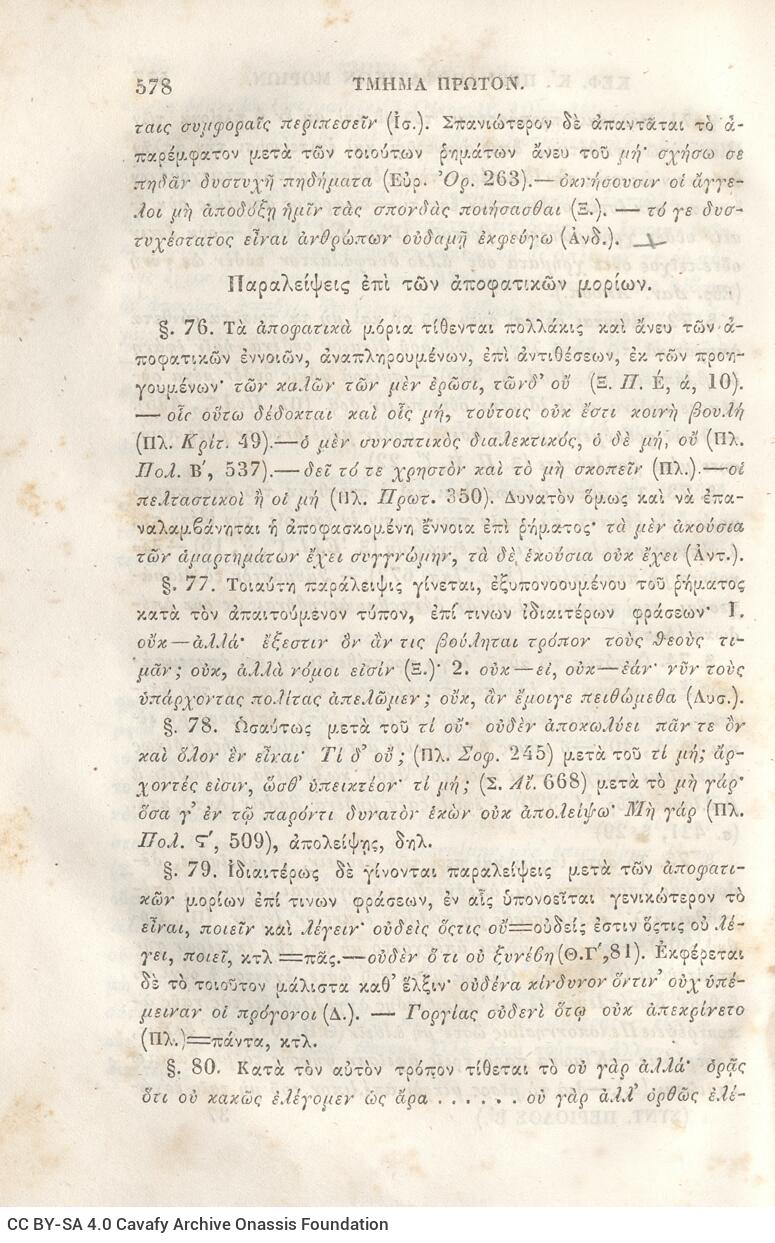 578 ΤΜΗΜΑ ΠΡΩΤΟΝ.
ταις συμφοραῖς περιπεσεῖν (Ἰσ.). Σπανιώτερον δὲ ἀπαντᾶται τὸ ἀ-
παρέμφατον μετὰ τῶν τοιούτων ῥημάτων ἄνευ τοῦ μή· σχήσω σε
πηδᾶν δυστυχῆ πηδήματα (Εὐρ. Ὀρ. 263).— ὀκνήσουσιν οἱ ἄγγε-
λοι μὴ ἀποδόξῃ ἡμῖν τὰς σπονδὰς ποιήσασθαι (Ξ.). — τό γε δυσ-
τυχέστατος εἶναι ἀνθρώπων οὐδαμῇ ἐκφεύγω (Ἀνδ.).
Παραλείψεις ἐπὶ τῶν ἀποφατικῶν μορίων.
§. 76. Τὰ ἀποφατικὰ μόρια τίθενται πολλάκις καὶ ἄνευ τῶν ἀ-
ποφατικῶν ἐννοιῶν, ἀναπληρουμένων, ἐπὶ ἀντιθέσεων, ἐκ τῶν προη-
γουμένων· τῶν καλῶν τῶν μὲν ἐρῶσι, τῶνδ' οὔ (Ξ. Π. Έ, ά, 10).
— οἷς οὕτω δέδοκται καὶ οἷς μή, τούτοις οὐκ ἔστι κοινὴ βουλή
(Πλ. Κρίτ. 49).—ὁ μὲν συνοπτικὸς διαλεκτικός, ὁ δὲ μή, οὔ (Πλ.
Πολ. Β΄, 537).— δεῖ τό τε χρηστὸν καὶ τὸ μὴ σκοπεῖν (Πλ.).—οἱ
πελταστικοὶ ἢ οἱ μή (Πλ. Πρωτ. 350). Δυνατὸν ὅμως καὶ νὰ ἐπα-
ναλαμβάνηται ἡ ἀποφασκομένη ἔννοια ἐπὶ ῥήματος· τὰ μὲν ἀκούσια
τῶν ἁμαρτημάτων ἔχει συγγνώμην, τὰ δὲ ἑκούσια οὐκ ἔχει (Ἀντ.).
§. 77. Τοιαύτη παράλειψις γίνεται, ἐξυπονοουμένου τοῦ ῥήματος
κατὰ τὸν ἀπαιτούμενον τύπον, ἐπί τινων ἰδιαιτέρων φράσεων· 1.
οὐκ — ἀλλά· ἔξεστιν ὃν ἄν τις βούληται τρόπον τοὺς θεοὺς τι-
μᾶν; οὐκ, ἀλλὰ νόμοι εἰσίν (Ξ.)· 2. οὐκ — εἰ, οὐκ — ἐάν· νῦν τοὺς
ὑπάρχοντας πολίτας ἀπελῶμεν; οὔκ, ἂν ἔμοιγε πειθώμεθα (Λυσ.).
§. 78. Ὡσαύτως μετὰ τοῦ τί οὔ· οὐδὲν ἀποκωλύει πᾶν τε ὂν
καὶ ὅλον ἓν εἶναι· Τί δ' οὔ; (Πλ. Σοφ. 245) μετὰ τοῦ τί μή; ἄρ-
χοντές εἰσιν, ὥσθ' ὑπεικτέον· τί μή; (Σ. Αἴ. 668) μετὰ τὸ μὴ γάρ·
ὅσα γ' ἐν τῷ παρόντι δυνατὸν ἑκὼν οὐκ ἀπολείψω· Μὴ γάρ (Πλ.
Πολ. Ϛ΄, 509), ἀπολείψῃς, δηλ.
§. 79. Ἰδιαιτέρως δὲ γίνονται παραλείψεις μετὰ τῶν ἀποφατι-
κῶν μορίων ἐπί τινων φράσεων, ἐν αἷς ὑπονοεῖται γενικώτερον τὸ
εἶναι, ποιεῖν καὶ λέγειν· οὐδεὶς ὅςτις οὔ=οὐδείς ἐστιν ὅςτις οὐ λέ-
γει, ποιεῖ, κτλ =πᾶς.—οὐδὲν ὅ τι οὐ ξυνέβη (Θ.Γ΄,81). Ἐκφέρεται
δὲ τὸ τοιοῦτον μάλιστα καθ' ἕλξιν· οὐδένα κίνδυνον ὅντιν' οὐχ ὑπέ-
μειναν οἱ πρόγονοι (Δ.). — Γοργίας οὐδενὶ ὅτῳ οὐκ ἀπεκρίνετο
(Πλ.)=πάντα, κτλ.
§. 80. Κατὰ τὸν αὐτὸν τρόπον τίθεται τὸ οὐ γὰρ ἀλλά· ὁρᾷς
ὅτι οὐ κακῶς ἐλέγομεν ὡς ἄρα . . . . . . οὐ γὰρ ἀλλ' ὀρθῶς ἐλέ-
CC BY-SA 4.0 Cavafy Archive Onassis Foundation